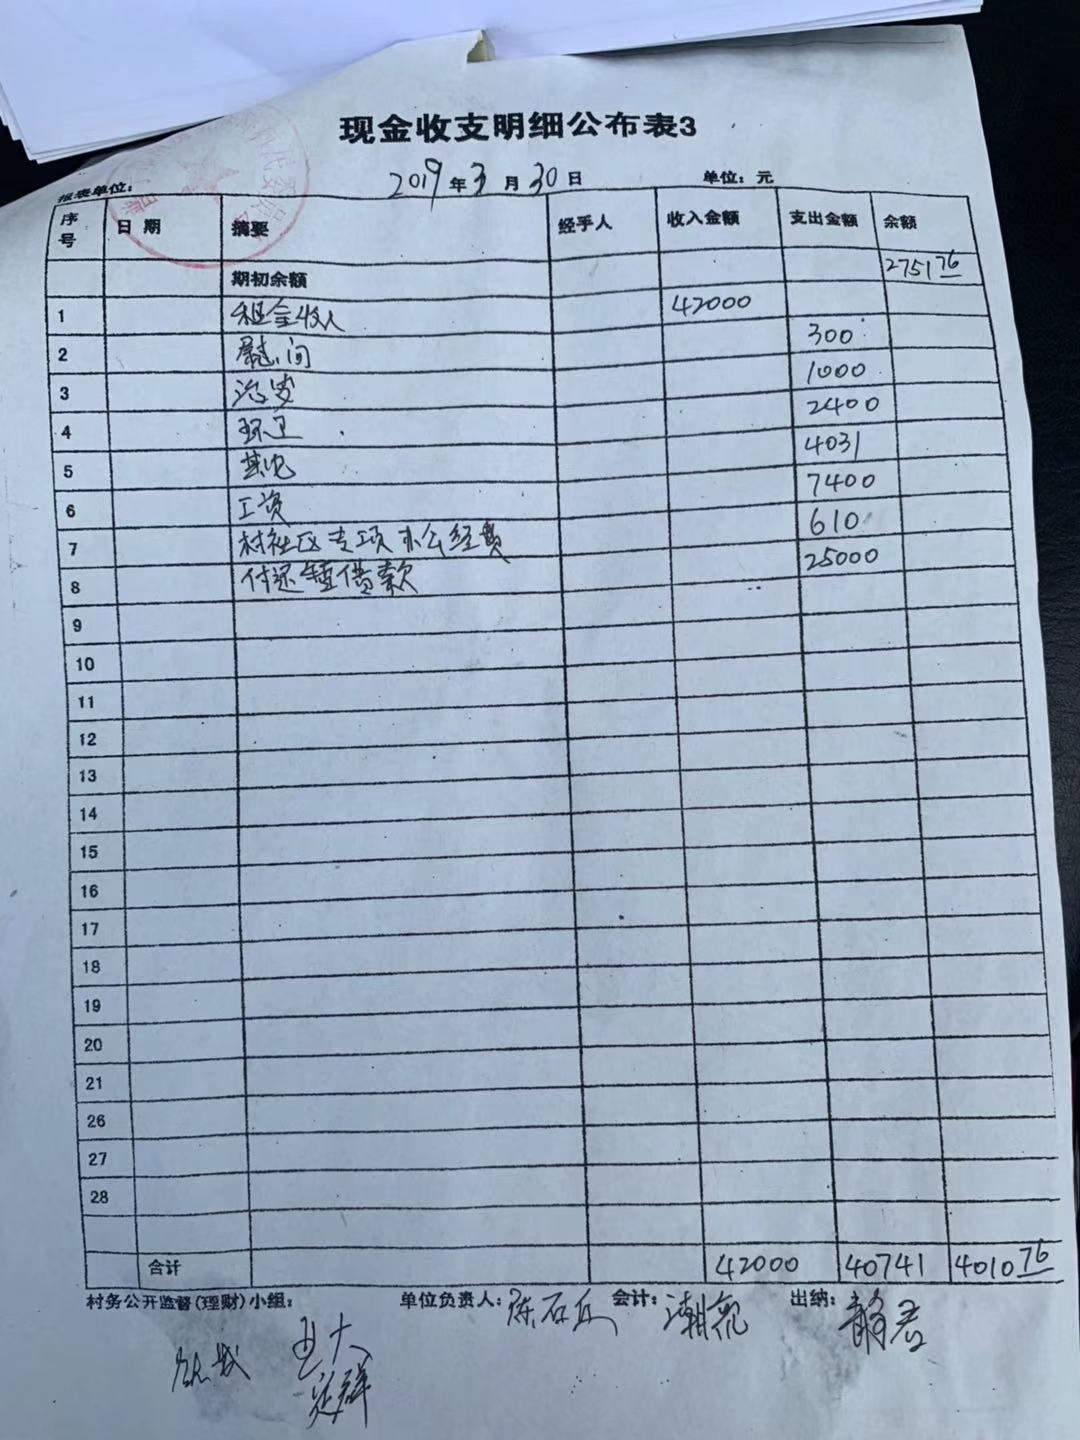 现金收支明细公布表3
报表单位: 2019年3月30日 单位:元
序号 日期 摘要 经手人 收入金额 支出金额 余额
期初余额 2751 76
1 租金收入 42000
2 慰问 300
3 1000
4 环卫 2400
5 其他 4031
6 工资 7400
7 村社区专项办公经费 610
8 付还 借款 25000
9
10
11
12
13
14
15
16
17
18
19
20
21
26
27
28
合计 42000 40741 4010 76
村务公开监督(理财)小组: 单位负责人: 会计: 出纳: